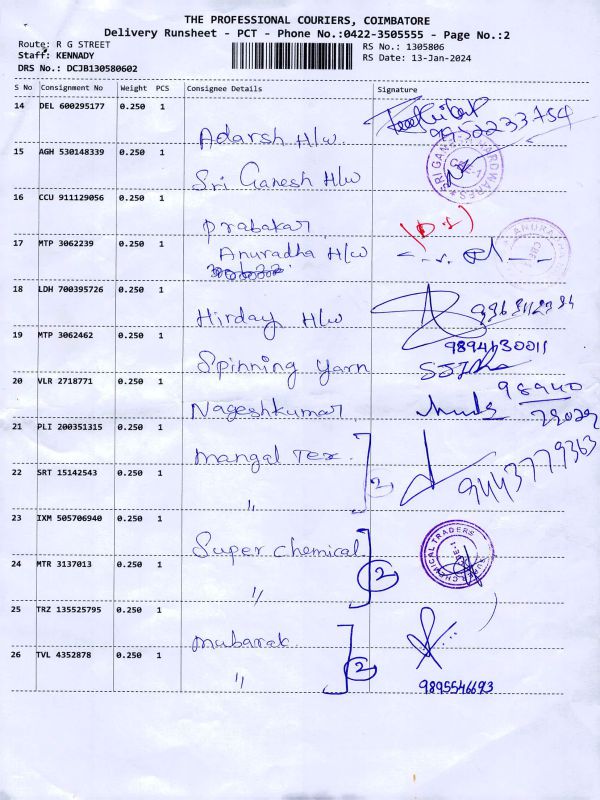 THE PROFESSIONAL COURIERS, COIMBATORE
Delivery Runsheet - PCT - Phone No.:0422-3505555 - Page No.:2
Route: R G STREET
Staff: KENNADY
DRS No.: DCJB130580602
RS No.: 1305806
RS Date: 13-Jan-2024
S No Consignment No Weight PCS Consignee Details Signature
14 DEL 600295177 0.250 1
Adarsh H/w. 9952233754
15 AGH 530148339 0.250 1
Sri Ganesh H/w SRI GANESH HARDWARES CBE-1
16 CCU 911129056 0.250 1
Prabakar (D.S)
17 MTP 3062239 0.250 1
Anuradha H/w
18 LDH 700395726 0.250 1
Hirday H/w
19 MTP 3062462 0.250 1
9894430011
Spinning Yarn
20 VLR 2718771 0.250 1
Nageshkumar 98940
29029
21 PLI 200351315 0.250 1
Mangal Tex. 2
22 SRT 15142543 0.250 1
〃 9443779363
23 IXM 505706940 0.250 1
Super Chemical SUPER CHEMICAL TRADERS
24 MTR 3137013 0.250 1
〃 2
25 TRZ 135525795 0.250 1
Mubarak
26 TVL 4352878 0.250 1
〃 2
9895546693